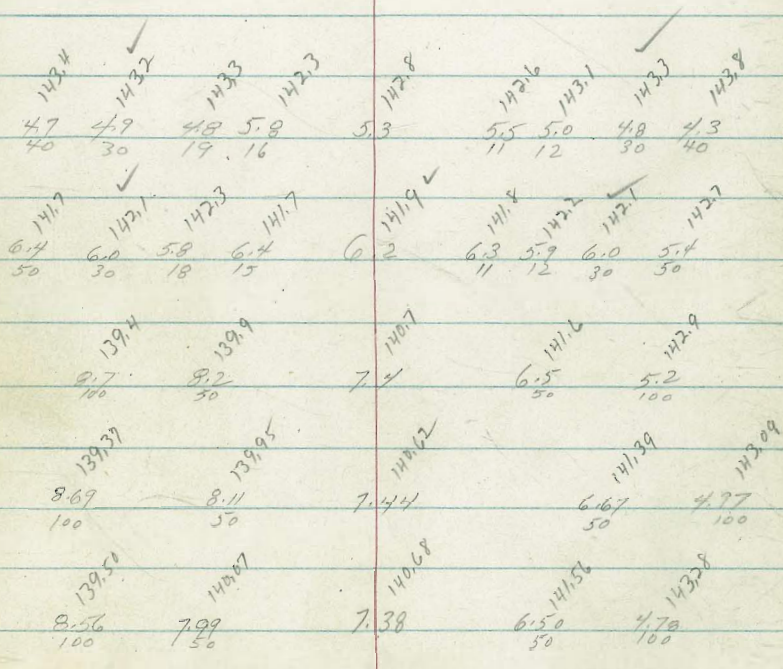 143.4 143.2 143.3 142.3 142.8 142.6 143.1 143.3 143.8
4.7 4.9 4.8 5.8 5.3 5.5 5.0 4.8 4.3
40 30 19 16 11 12 30 40
141.7 142.1 142.3 141.7 141.9 141.8 142.2 142.1 142.7
6.4 6.0 5.8 6.4 6.2 6.3 5.9 6.0 5.4
50 30 18 15 11 12 30 50
139.4 139.9 140.7 141.6 142.9
8.7 8.2 7.4 6.5 5.2
100 50 50 100
139.37 139.95 140.62 141.39 143.09
8.69 8.11 7.44 6.67 4.97
100 50 50 100
139.50 140.07 140.68 141.56 143.28
8.56 7.99 7.38 6.50 4.78
100 50 50 100